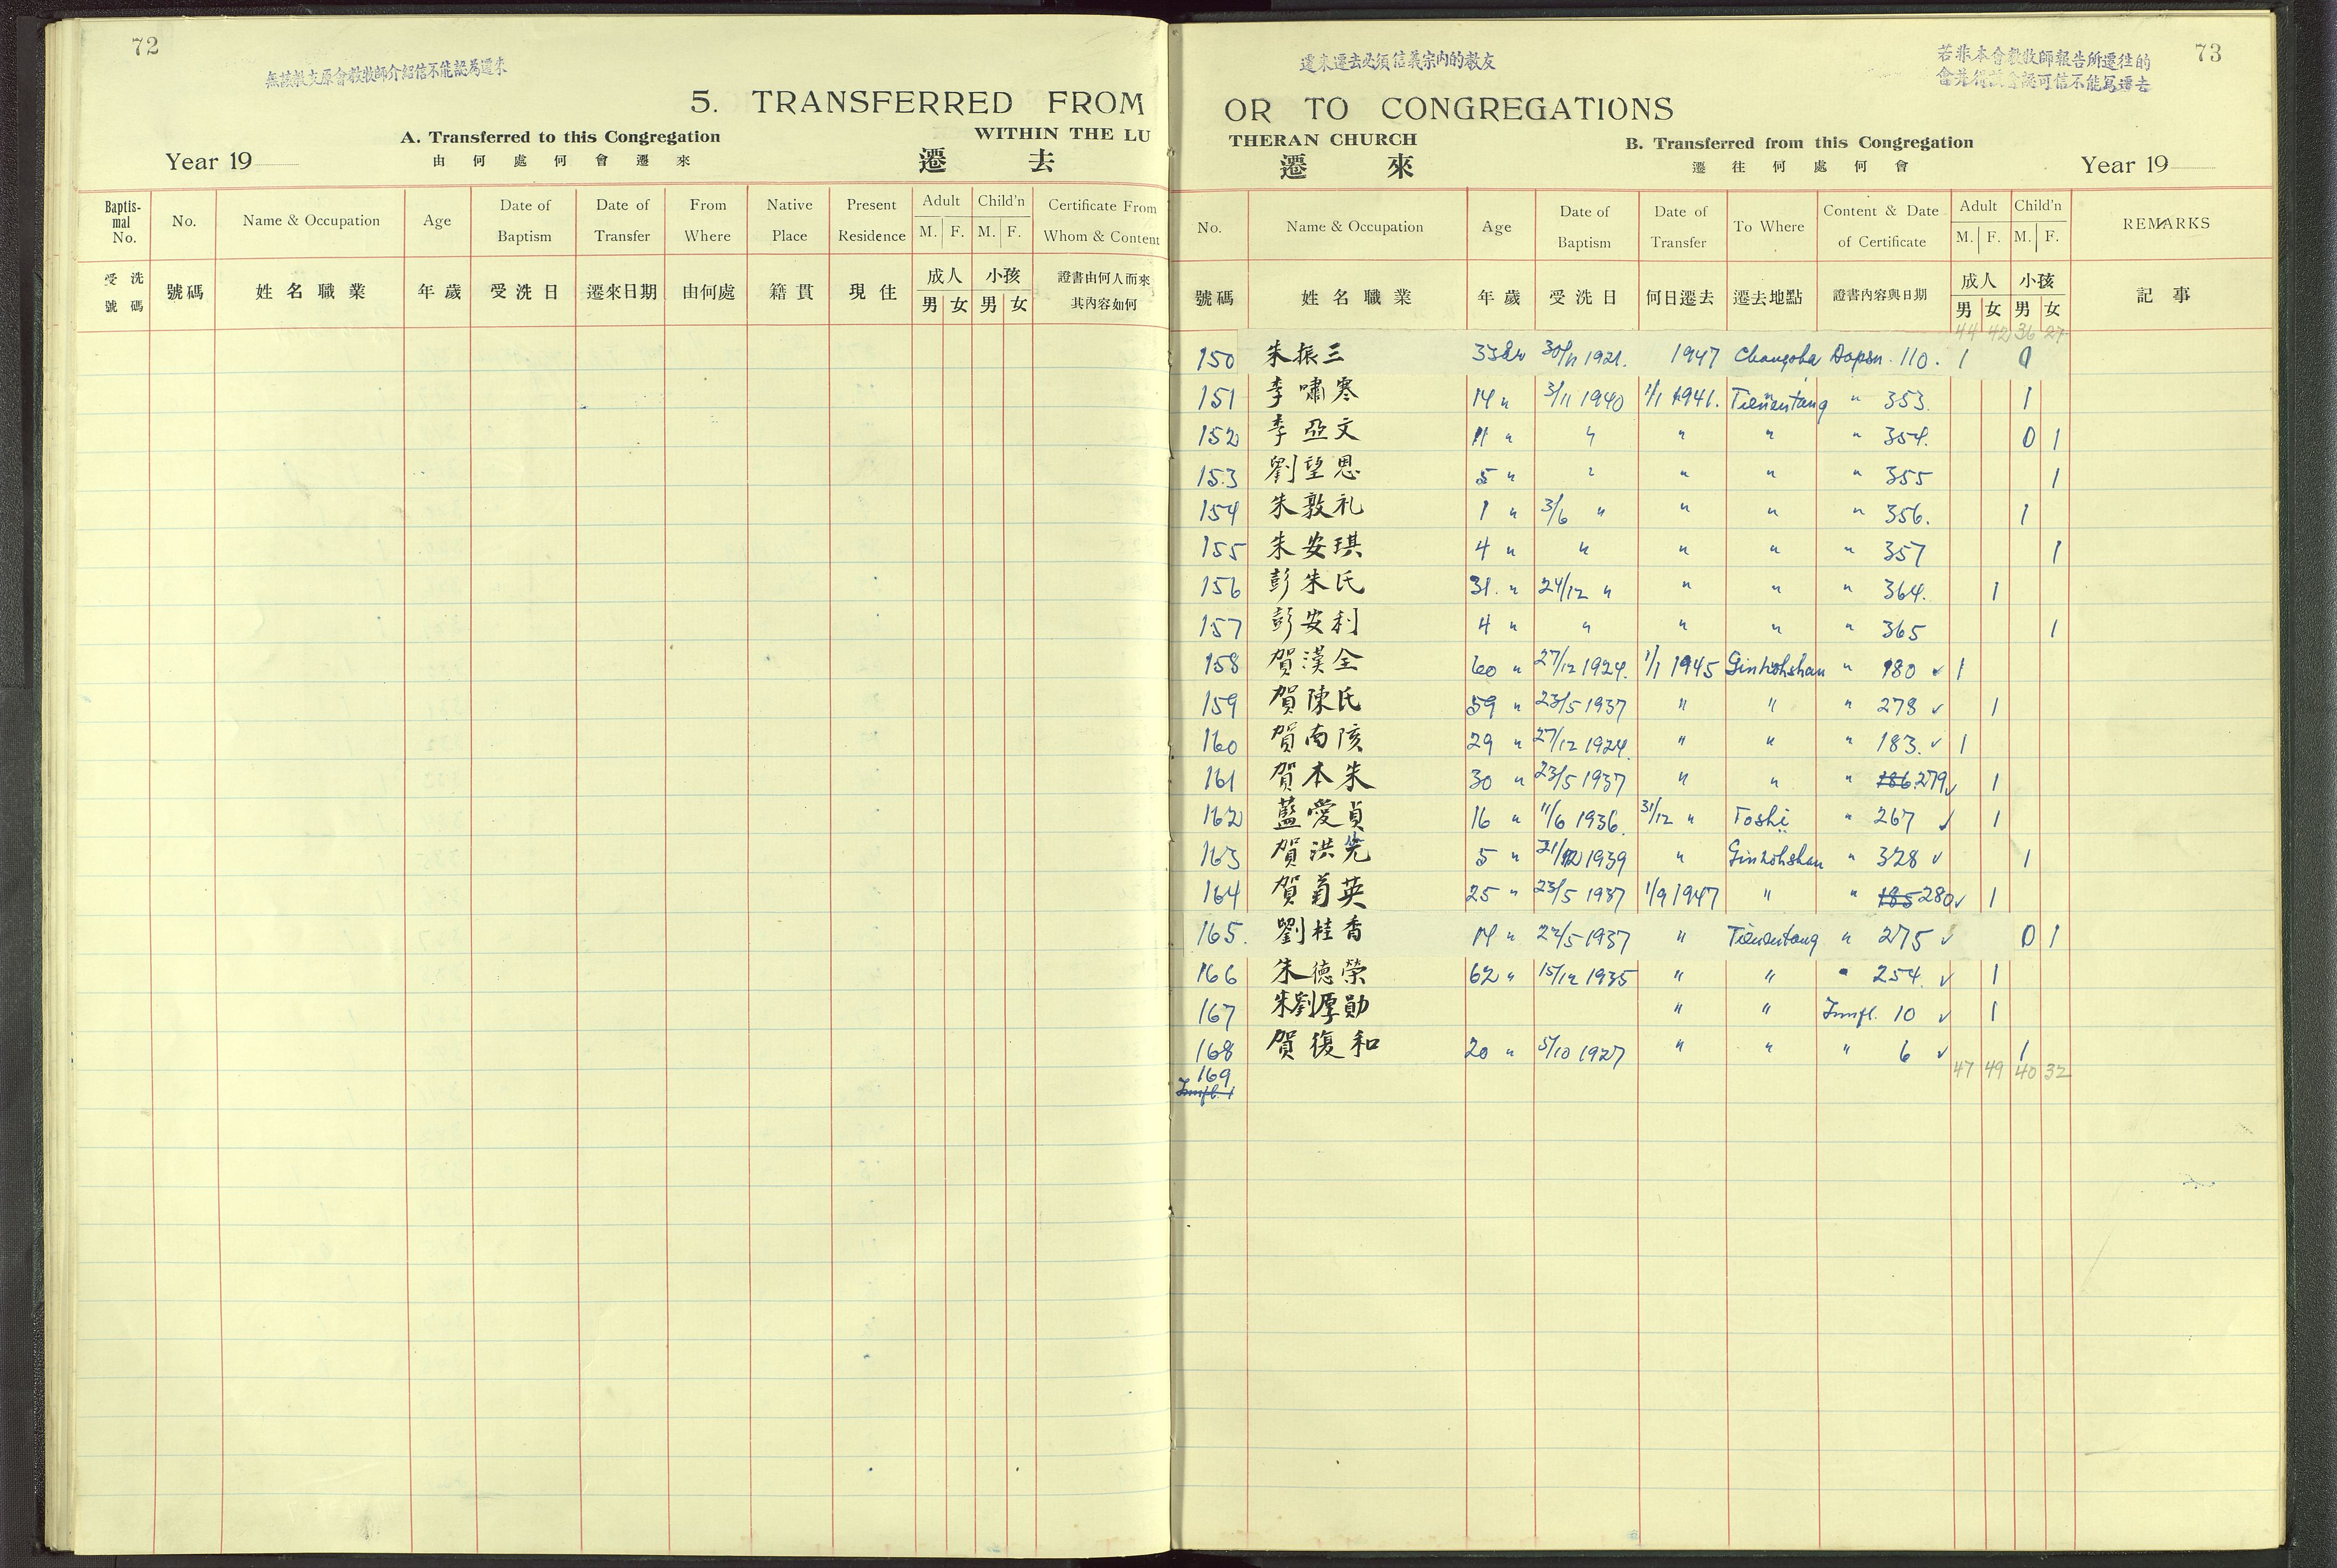 72
無該教友原會教牧師介紹信不能認為遷來
5. TRANSFERRED FROM
A. Transferred to this Congregation
WITHIN THE LU
Year 19
由何處何會遷來
遷去
Baptismal No. No. Name & Occupation Age Date of Baptism Date of Transfer From Where Native Place Present Residence Adult M. F. Child'n M. F. Certificate From Whom & Content
受洗號碼 號碼 姓名職業 年歲 受洗日 遷來日期 由何處 籍貫 現住 成人 男 女 小孩 男 女 證書由何人而來其內容如何
遷來遷去必須信義宗內的教友
若非本會教牧師報告所遷往的
認可信不能寫遷去
73
OR TO CONGREGATIONS
THERAN CHURCH
B. Transferred from this Congregation
遷來
遷往何處何會
Year 19
No. Name & Occupation Age Date of Baptism Date of Transfer To Where Content & Date of Certificate Adult M. F. Child'n M. F. REMARKS
號碼 姓名職業 年歲 受洗日 何日遷去 遷去地點 證書內容與日期 成人 男 女 小孩 男 女 記事
44 42 36 27
150 朱振三 1921. 1947 110. 1 0
151 李嘯寒 14 " 3/11 1940 1/1 1941. Tienentang " 353. 1
152 李亞文 11 " " " " " 354. 0 1
153 劉望恩 5 " " " " " 355 1
154 朱敦礼 1 " 3/6 " " " " 356. 1
155 朱安琪 4 " " " " " 357 1
156 彭朱氏 31. " 24/12 " " " " 364. 1
157 彭安利 4 " " " " " 365 1
158 賀漢全 60 " 27/12 1924. 1/1 1945 Ginkohshan " 180 ✓ 1
159 賀陳氏 59 " 23/5 1937 " " " 278 ✓ 1
160 賀南陔 29 " 27/12 1924. " " " 183. ✓ 1
161 賀本朱 30 " 23/5 1937 " " " 186 279 ✓ 1
162 藍愛貞 16 " 11/6 1936. 31/12 " Toshi " 267 ✓ 1
163 賀洪 5 " 1939 " Ginkohshan " 328 ✓ 1
164 賀菊英 25 " 23/5 1937 1/9 1947 " " 185 280 ✓ 1
165. 劉桂香 14 " 22/5 1937 " Tienentang " 275 ✓ 0 1
166 朱德榮 62 " 15/12 1935 " " " 254. ✓ 1
167 朱劉厚勛 " " Innfl. 10 ✓ 1
168 賀復和 20 " 5/10 1927 " " " 6 ✓ 1
47 49 40 32
169
Innfl. 1